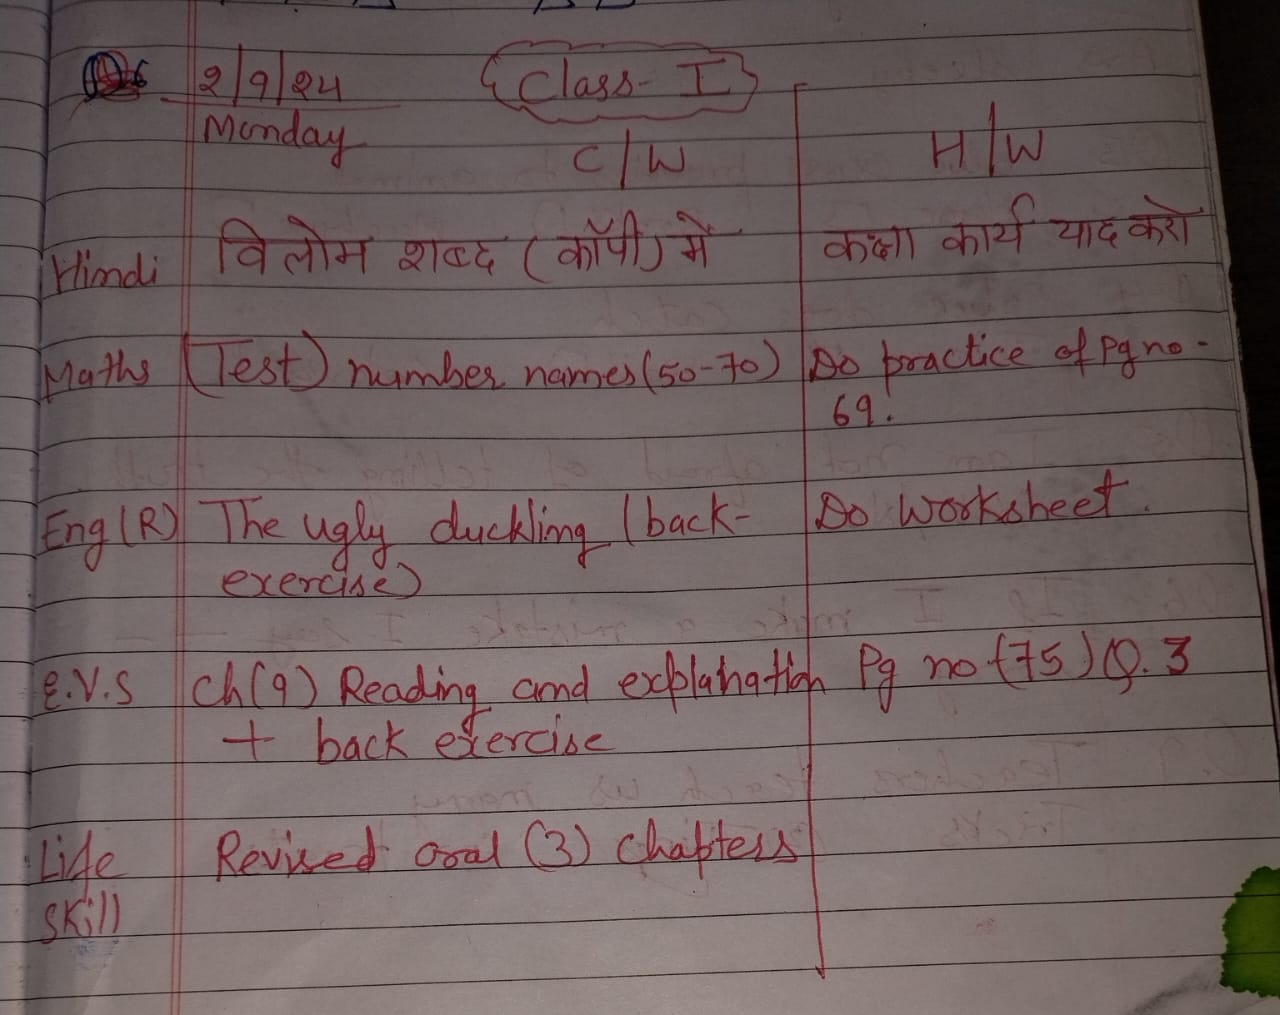 2/9/24 Class- I
Monday
C/W H/W
Hindi विलोम शब्द (कॉपी) में कक्षा कार्य याद करो
Maths (Test) number names (50-70) Do practice of Pg no-
69.
Eng (R) The ugly duckling (back- Do Worksheet.
exercise)
E.V.S Ch(9) Reading and explanation Pg no (75) Q. 3
+ back exercise
Life Revised oral (3) chapters
Skill